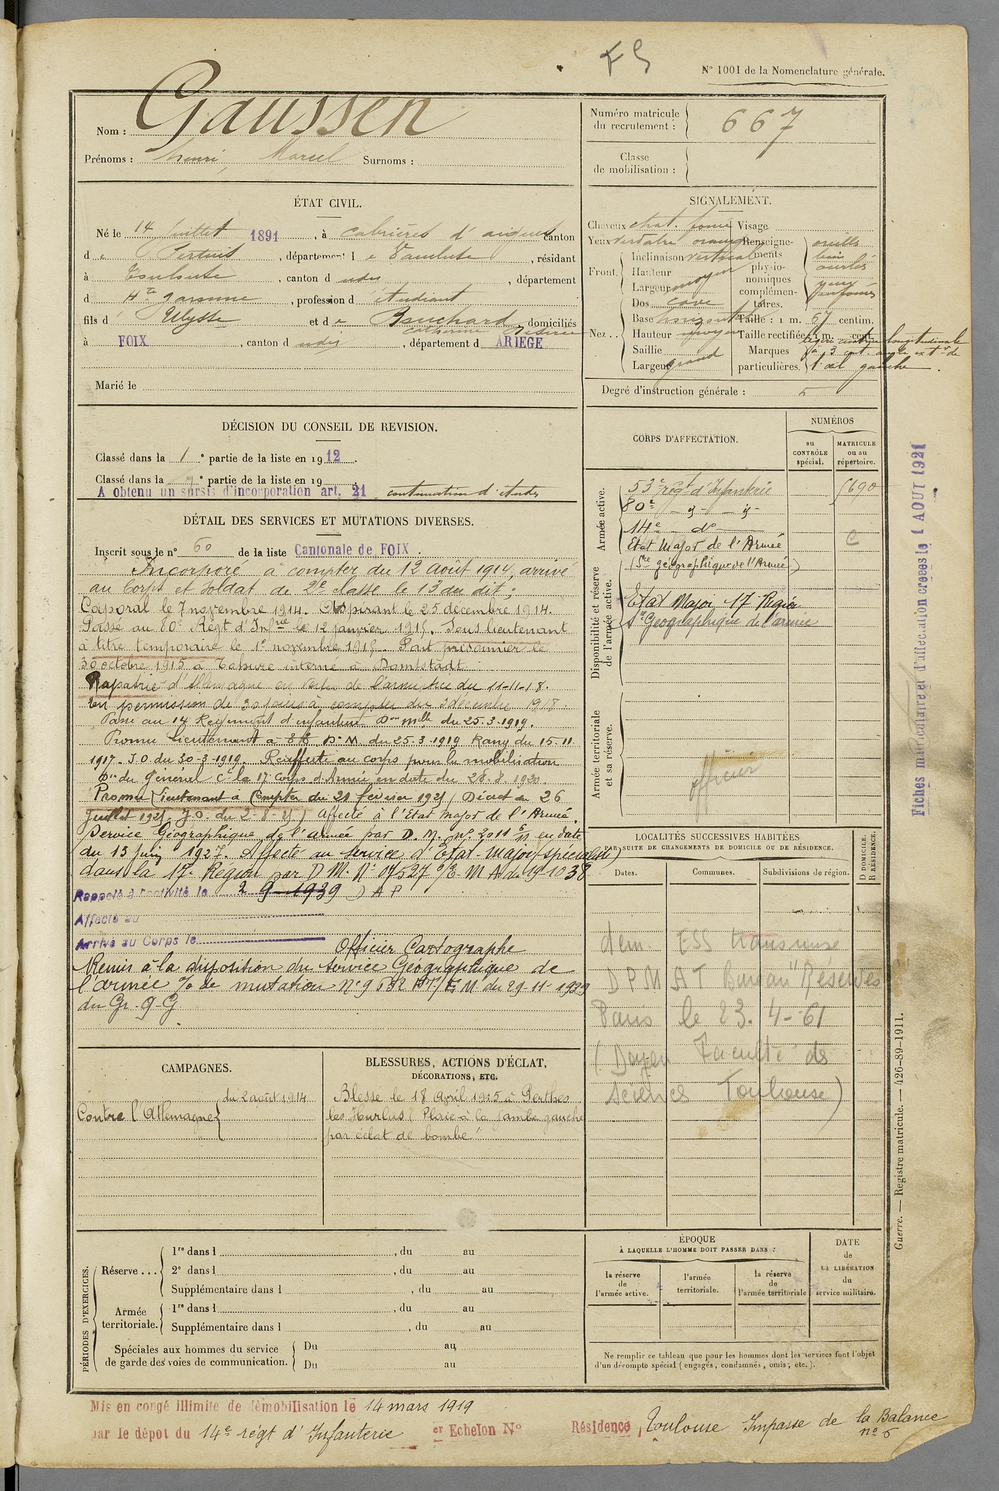 N° 1001 de la Nomenclature générale.
Nom : Gaussen
Prénoms : Henri, Marcel Surnoms :
Numéro matricule du recrutement : 667
Classe de mobilisation :
ÉTAT CIVIL.
Né le 14 Juillet 1891, à Cabrières d'aigues canton
de Pertuis, département de Vaucluse, résidant
à Toulouse, canton d udit, département
d Hte Garonne, profession d étudiant
fils d' Ulysse et de Bouchard domiciliés
à FOIX, canton d udit, département d ARIÈGE
Marié le
SIGNALEMENT.
Cheveux chat. foncé Visage
Yeux verdatre orangé Renseigne-
Front. Inclinaison vertical ments
Hauteur physio-
Largeur moyen nomiques
Nez.. Dos cave complémen-
Base horizontale taires.
Hauteur moyen
Saillie
Largeur grand
Taille : 1 m. 67 centim.
Taille rectifiée : 1 m. cent.
Marques particulières. longitudinale
de 3 cent. angle extr de
l'œil gauche.
Degré d'instruction générale : 5
DÉCISION DU CONSEIL DE REVISION.
Classé dans la 1e partie de la liste en 1912.
Classé dans la e partie de la liste en 19
A obtenu un sursis d'incorporation art. 21 continuation d'études
DÉTAIL DES SERVICES ET MUTATIONS DIVERSES.
Inscrit sous le n° 60 de la liste Cantonale de FOIX.
Incorporé à compter du 12 août 1914, arrivé
au Corps et Soldat de 2e classe le 13 du dit ;
Caporal le 7 novembre 1914. Aspirant le 25 décembre 1914.
Passé au 80e Régt d'Infrie le 12 janvier 1915. Sous lieutenant
à titre temporaire le 1er novembre 1915. Fait prisonnier le
30 octobre 1915 à Tahure interné à Darmstadt
Rapatrié d'Allemagne en vertu de l'armistice du 11-11-18.
En permission de 30 jours à compter du 3 décembre 1918.
Passé au 14 Régiment d'infanterie Don mlle du 25.3.1919.
Promu Lieutenant à T.T. D.M. du 25.3.1919 Rang du 15.11
1917. J.O. du 30-3-1919. Réaffecté au corps pour la mobilisation
on du Général Ct le 17 Corps d'Armée en date du 28.8.1920
Promu Lieutenant à Compter du 21 février 1921 (Décret du 26
Juillet 1921. J.O. du 2-8-21) Affecté à l'État Major de l'Armée.
Service Géographique de l'armée par D.M. n° 2011 en date
du 15 juin 1927. Affecté au service d'État-Major (spécialiste)
dans la 17e Région par D.M. N° 04527 du 19-10-38
Rappelé à l'activité le 2 9 1939) A P
Affecté au
Arrivé au Corps le
Officier Cartographe
Remis à la disposition du Service Géographique de
l'armée % de mutation N° 9682 du 29-11-1939
du Gr. Q. G
CORPS D'AFFECTATION.
NUMÉROS
au CONTRÔLE spécial.
MATRICULE ou au répertoire.
Armée active.
53e régt d'Infanterie 5690
80e - d° - d° -
14e - d°
Etat Major de l'Armée
(Sce géographique de l'Armée)
Disponibilité et réserve de l'armée active.
Etat Major 17e Région
Sce Géographique de l'armée
Armée territoriale et sa réserve.
officier
Fiches matriculaire et d'affectation créées le 1 AOUT 1921
LOCALITÉS SUCCESSIVES HABITÉES
PAR SUITE DE CHANGEMENTS DE DOMICILE OU DE RÉSIDENCE.
Dates. Communes. Subdivisions de région. D DOMICILE. R RÉSIDENCE.
dem. ESS transmise
DPMAT Bureau "Réserves"
Paris le 23-4-61
(Doyen Faculté des
Sciences Toulouse)
CAMPAGNES.
Contre l'Allemagne { du 2 août 1914
BLESSURES, ACTIONS D'ÉCLAT, DÉCORATIONS, ETC.
Blessé le 18 Avril 1915 à Perthes
les Hurlus "Plaie à la jambe gauche
par éclat de bombe"
Guerre. — Registre matricule. — 426-89-1911.
PÉRIODES D'EXERCICES.
Réserve... 1re dans l , du au
2e dans l , du au
Supplémentaire dans l , du au
Armée territoriale. 1re dans l , du au
Supplémentaire dans l , du au
Spéciales aux hommes du service de garde des voies de communication. Du au
Du au
ÉPOQUE
À LAQUELLE L'HOMME DOIT PASSER DANS :
la réserve de l'armée active. l'armée territoriale. la réserve de l'armée territoriale
DATE de LA LIBÉRATION du service militaire.
Ne remplir ce tableau que pour les hommes dont les services font l'objet
d'un décompte spécial (engagés, condamnés, omis, etc.).
Mis en congé illimité de démobilisation le 14 mars 1919
par le dépôt du 14e régt d'Infanterie er Echelon N° Résidence Toulouse Impasse de la Balance
n° 6